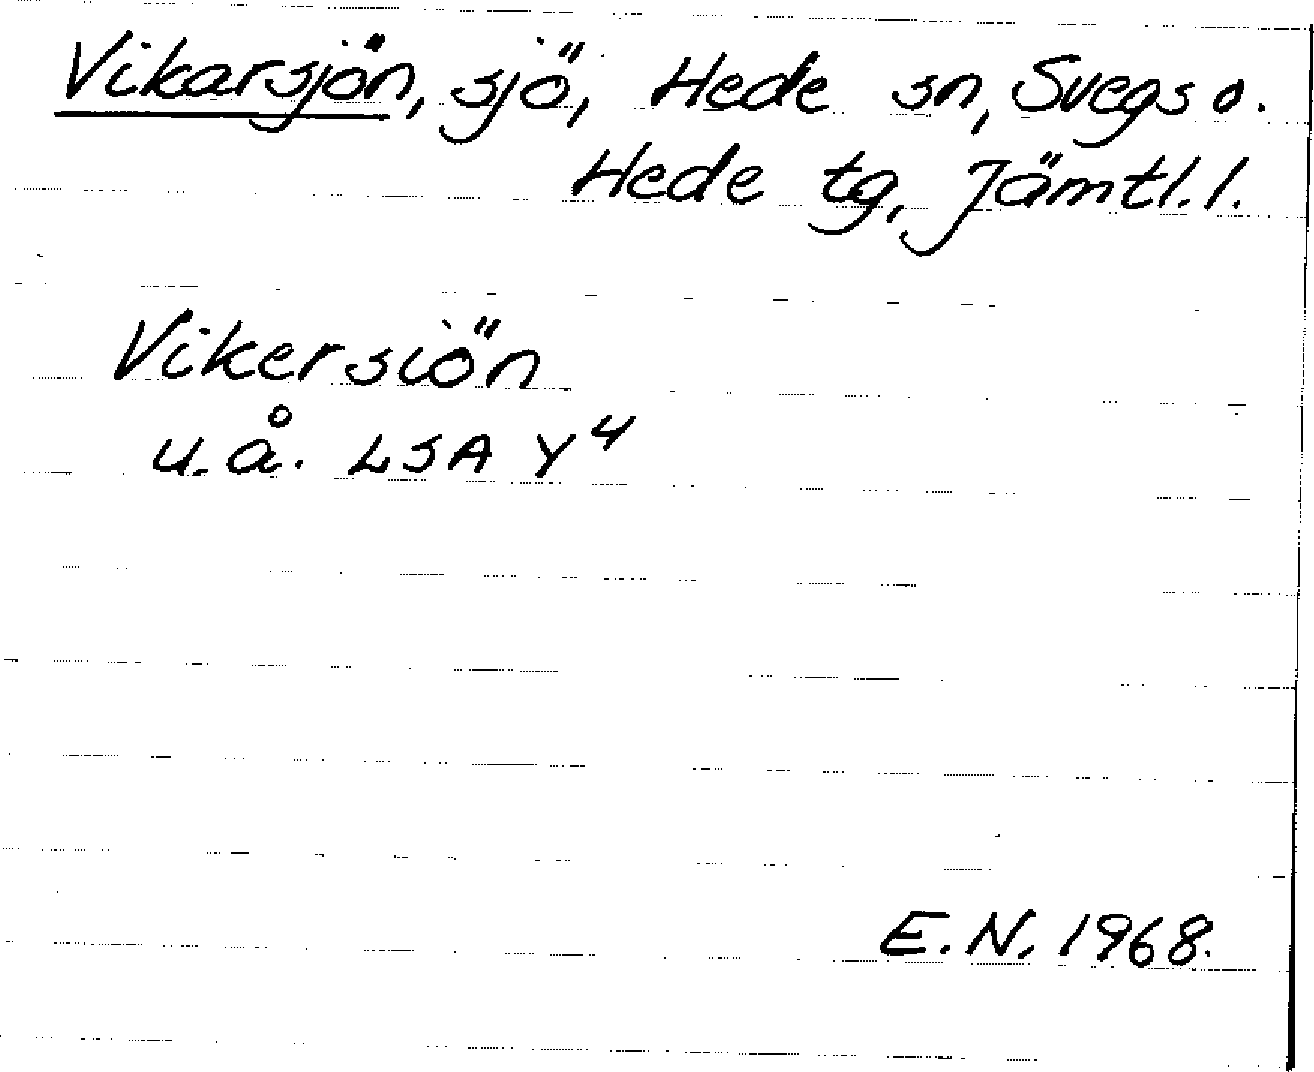 Vikarsjön, sjö, Hede sn, Svegs o.
Hede tg, Jämtl. l.
Vikersiön
u.å. LSA Y4
E.N. 1968.